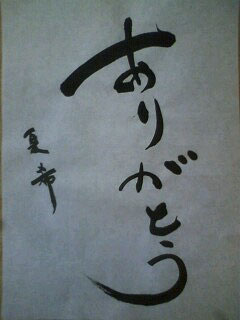 ありがとう
夏希